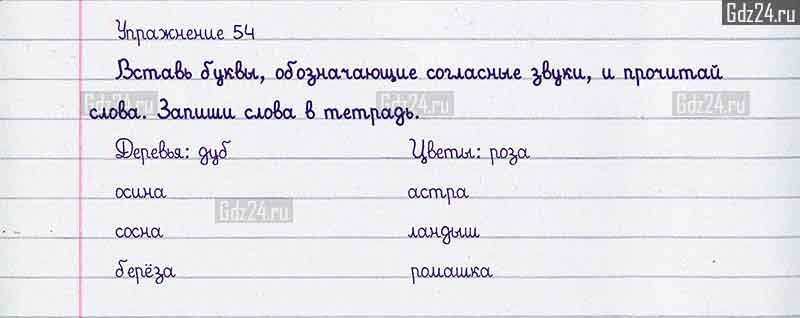 Gdz24.ru
Упражнение 54
Вставь буквы, обозначающие согласные звуки, и прочитай
Gdz24.ru Gdz24.ru Gdz24.ru
слова. Запиши слова в тетрадь.
Деревья: дуб Цветы: роза
осина астра
Gdz24.ru
сосна ландыш
берёза ромашка